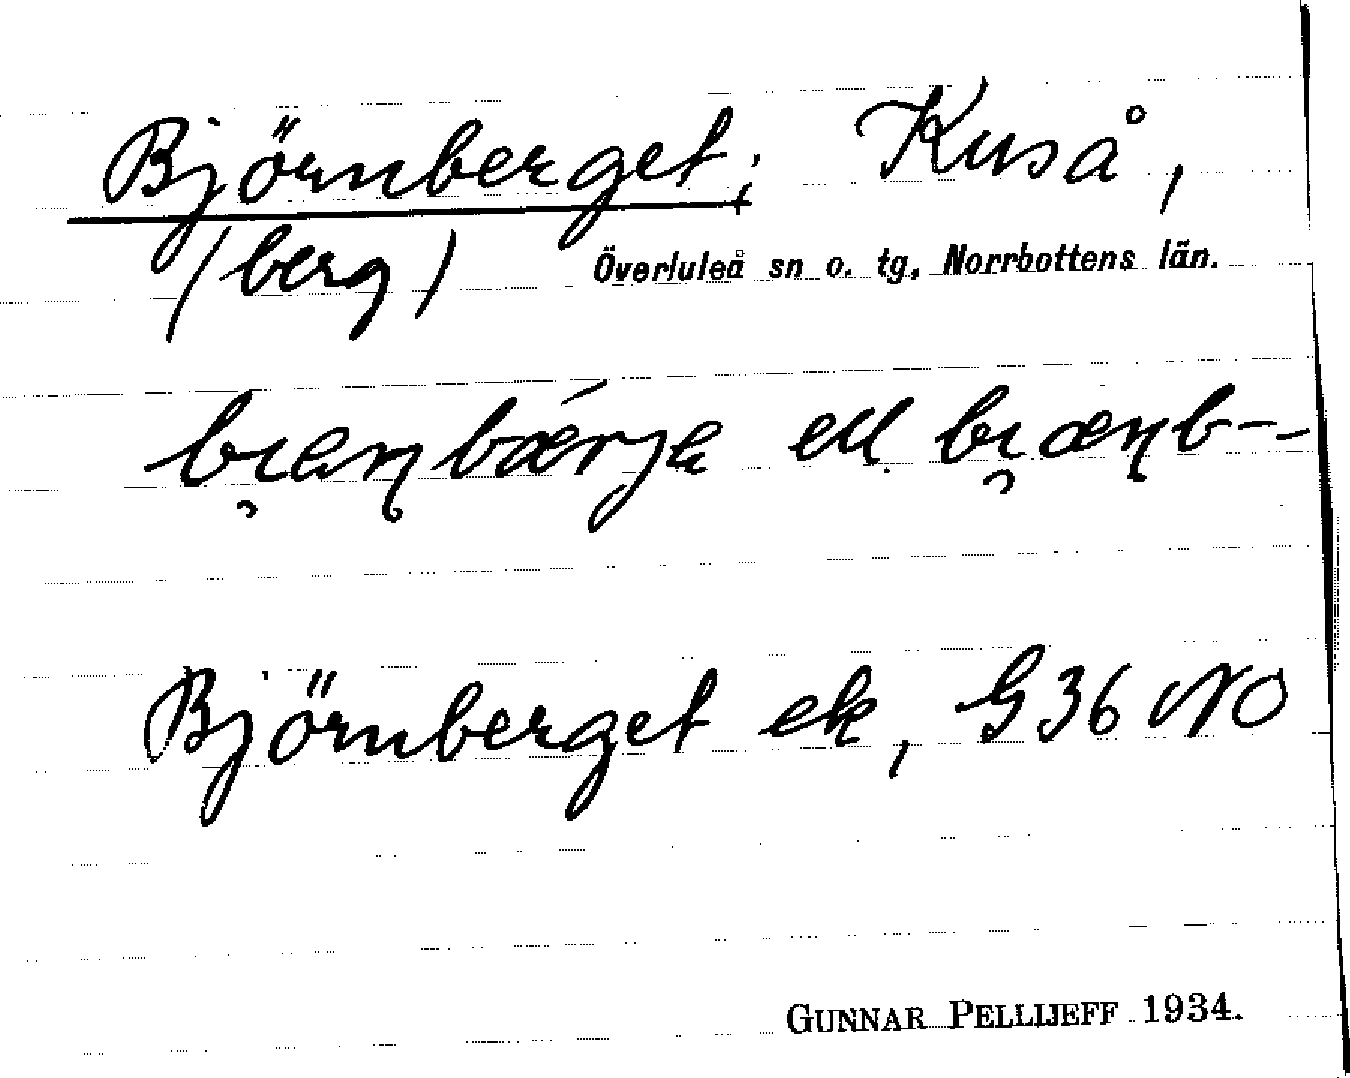 Björnberget; Kuså,
(berg) Överluleå sn o. tg, Norrbottens län.
ell
Björnberget ek, G36 NO
GUNNAR PELLIJEFF 1934.